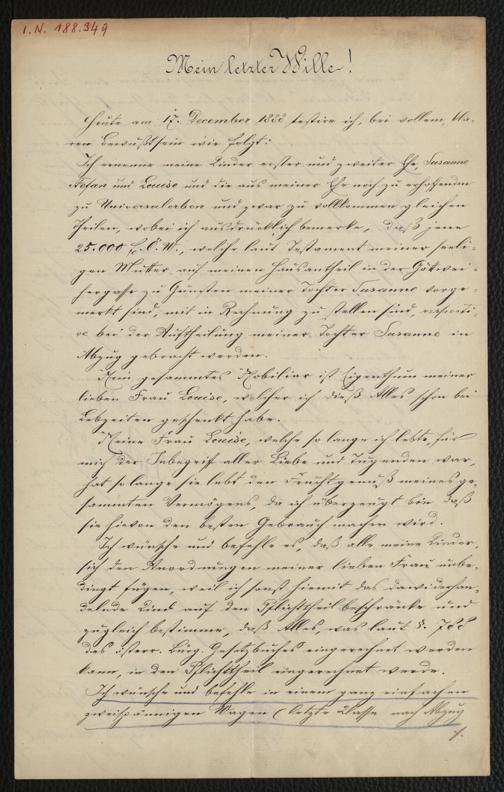 I.N. 188.349
Mein letzter Wille!
Heute am 17. December 1882 testire ich, bei vollem, kla-
rem Bewußtsein wie folgt:
Ich ernenne meine Kinder erster und zweiter Ehe, Susanne
Stefan und Louise und die aus meiner Ehe noch zu erhoffenden
zu Universalerben und zwar zu vollkommen gleichen
Theilen, wobei ich ausdrücklich bemerke, daß jene
25.000 fl. C. M., welche laut Testament meiner seeli-
gen Mutter auf meinen Hausantheil in der Göttwei-
hergasse zu Gunsten meiner Tochter Susanne vorge-
merkt sind, mit in Rechnung zu stellen sind, respecti-
ve bei der Auftheilung meiner Tochter Susanne in
Abzug gebracht werden.
Mein gesammtes Mobiliar ist Eigenthum meiner
lieben Frau Louise, welcher ich dieß Alles schon bei
Lebzeiten geschenkt habe.
Meine Frau Louise, welche so lange ich lebte, für
mich der Inbegriff aller Liebe und Tugenden war,
hat so lange sie lebt den Fruchtgenuß meines ge-
sammten Vermögens, da ich überzeugt bin, daß
sie hievon den besten Gebrauch machen wird.
Ich wünsche und befehle es, daß alle meine Kinder,
sich den Anordnungen meiner lieben Frau unbe-
dingt fügen, weil ich sonst hiemit das dawiderhan-
delnde Kind auf den Pflichttheil beschränke und
zugleich bestimme, daß Alles, was laut §.
des österr. bürg. Gesetzbuches eingerechnet werden
kann, in den Pflichttheil eingerechnet werde.
Ich wünsche und befehle in einem ganz einfachen
zweispännigen Wagen (letzte Classe nach Abzug